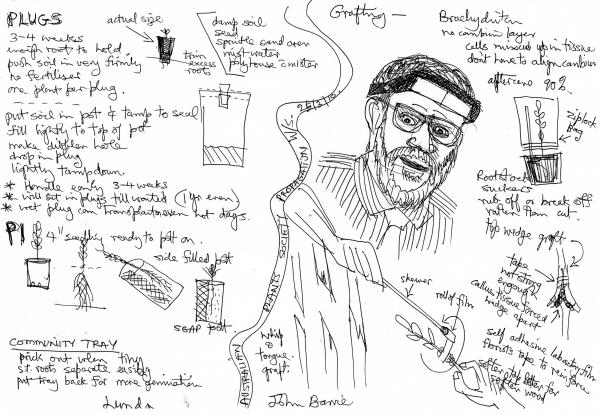 PLUGS
3-4 weeks
worth root to hold.
push soil in very firmly
no fertiliser
one plant per plug.
actual size
trim
excess
roots
damp soil
seed
sprinkle sand over
mist water
polyhouse & mister
put soil in pot & tamp to seed
fill lightly to top of pot
make dibber hole
drop in plug
lightly tamp down.
* Handle early 3-4 weeks
* will sit in plugs till wanted (1 yr even)
* wet plug can transplant even hot days.
4" seedling ready to pot on.
side filled pot
SGAP pot
COMMUNITY TRAY
prick out when tiny
s.t. roots separate easily
put tray back for more germination
Lynda
AUSTRALIAN PLANTS SOCIETY PROPAGATION
whip &
tongue
graft.
John Barrie
Grafting —
Brachychiton
no cambium layer
cells mixed up in tissue
don't have to align cambium
aftercare 90%
ziplock
bag
Rootstock
suckers
rub off or break off
rather than cut.
top wedge graft
tape
not strong
enough
callus tissue forced
wedge apart
skewer
roll of film
self adhesive laboratory film
florists tape to reinforce
softer wood